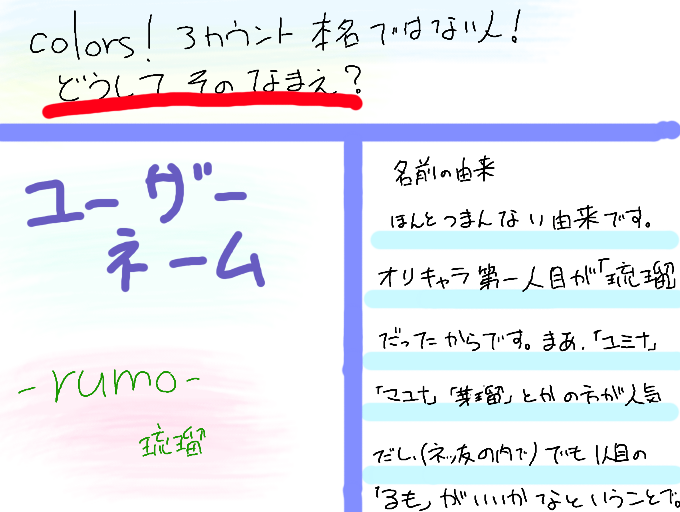 colors! 3カウント 本名ではない人!
どうして そのなまえ?
ユーザー
ネーム
-rumo-
琉瑠
名前の由来
ほんとつまんない由来です。
オリキャラ第一人目が「琉瑠
だったからです。まあ、「ユミナ」
「マユナ」「芽瑠」とかの方が人気
だし、(ネッ友の内で)でも1人目の
「るも」がいいかなということで。